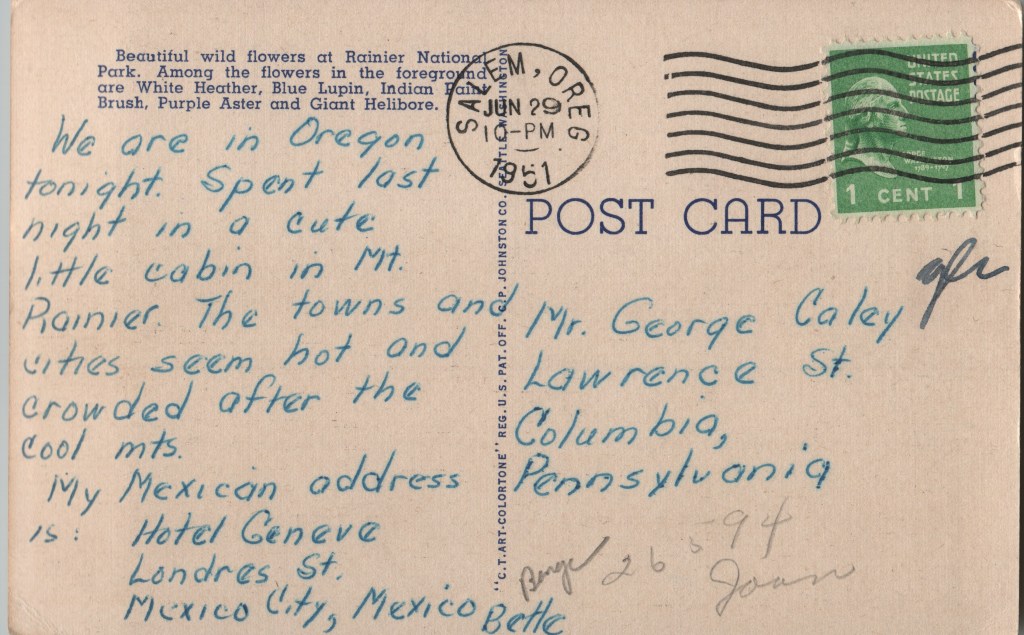 Beautiful wild flowers at Rainier National
Park. Among the flowers in the foreground
are White Heather, Blue Lupin, Indian Paint
Brush, Purple Aster and Giant Helibore.
We are in Oregon
tonight. Spent last
night in a cute
little cabin in Mt.
Rainier. The towns and
cities seem hot and
crowded after the
cool mts.
My Mexican address
is: Hotel Geneve
Londres St.
Mexico City, Mexico
Bette
"C.T. ART-COLORTONE" REG. U.S. PAT. OFF. C.P. JOHNSTON CO. SEATTLE, WASHINGTON
SALEM, OREG
JUN 29
10-PM
1951
UNITED
STATES
POSTAGE
1 CENT 1
POST CARD
Mr. George Caley
Lawrence St.
Columbia,
Pennsylvania
94
26
Joan